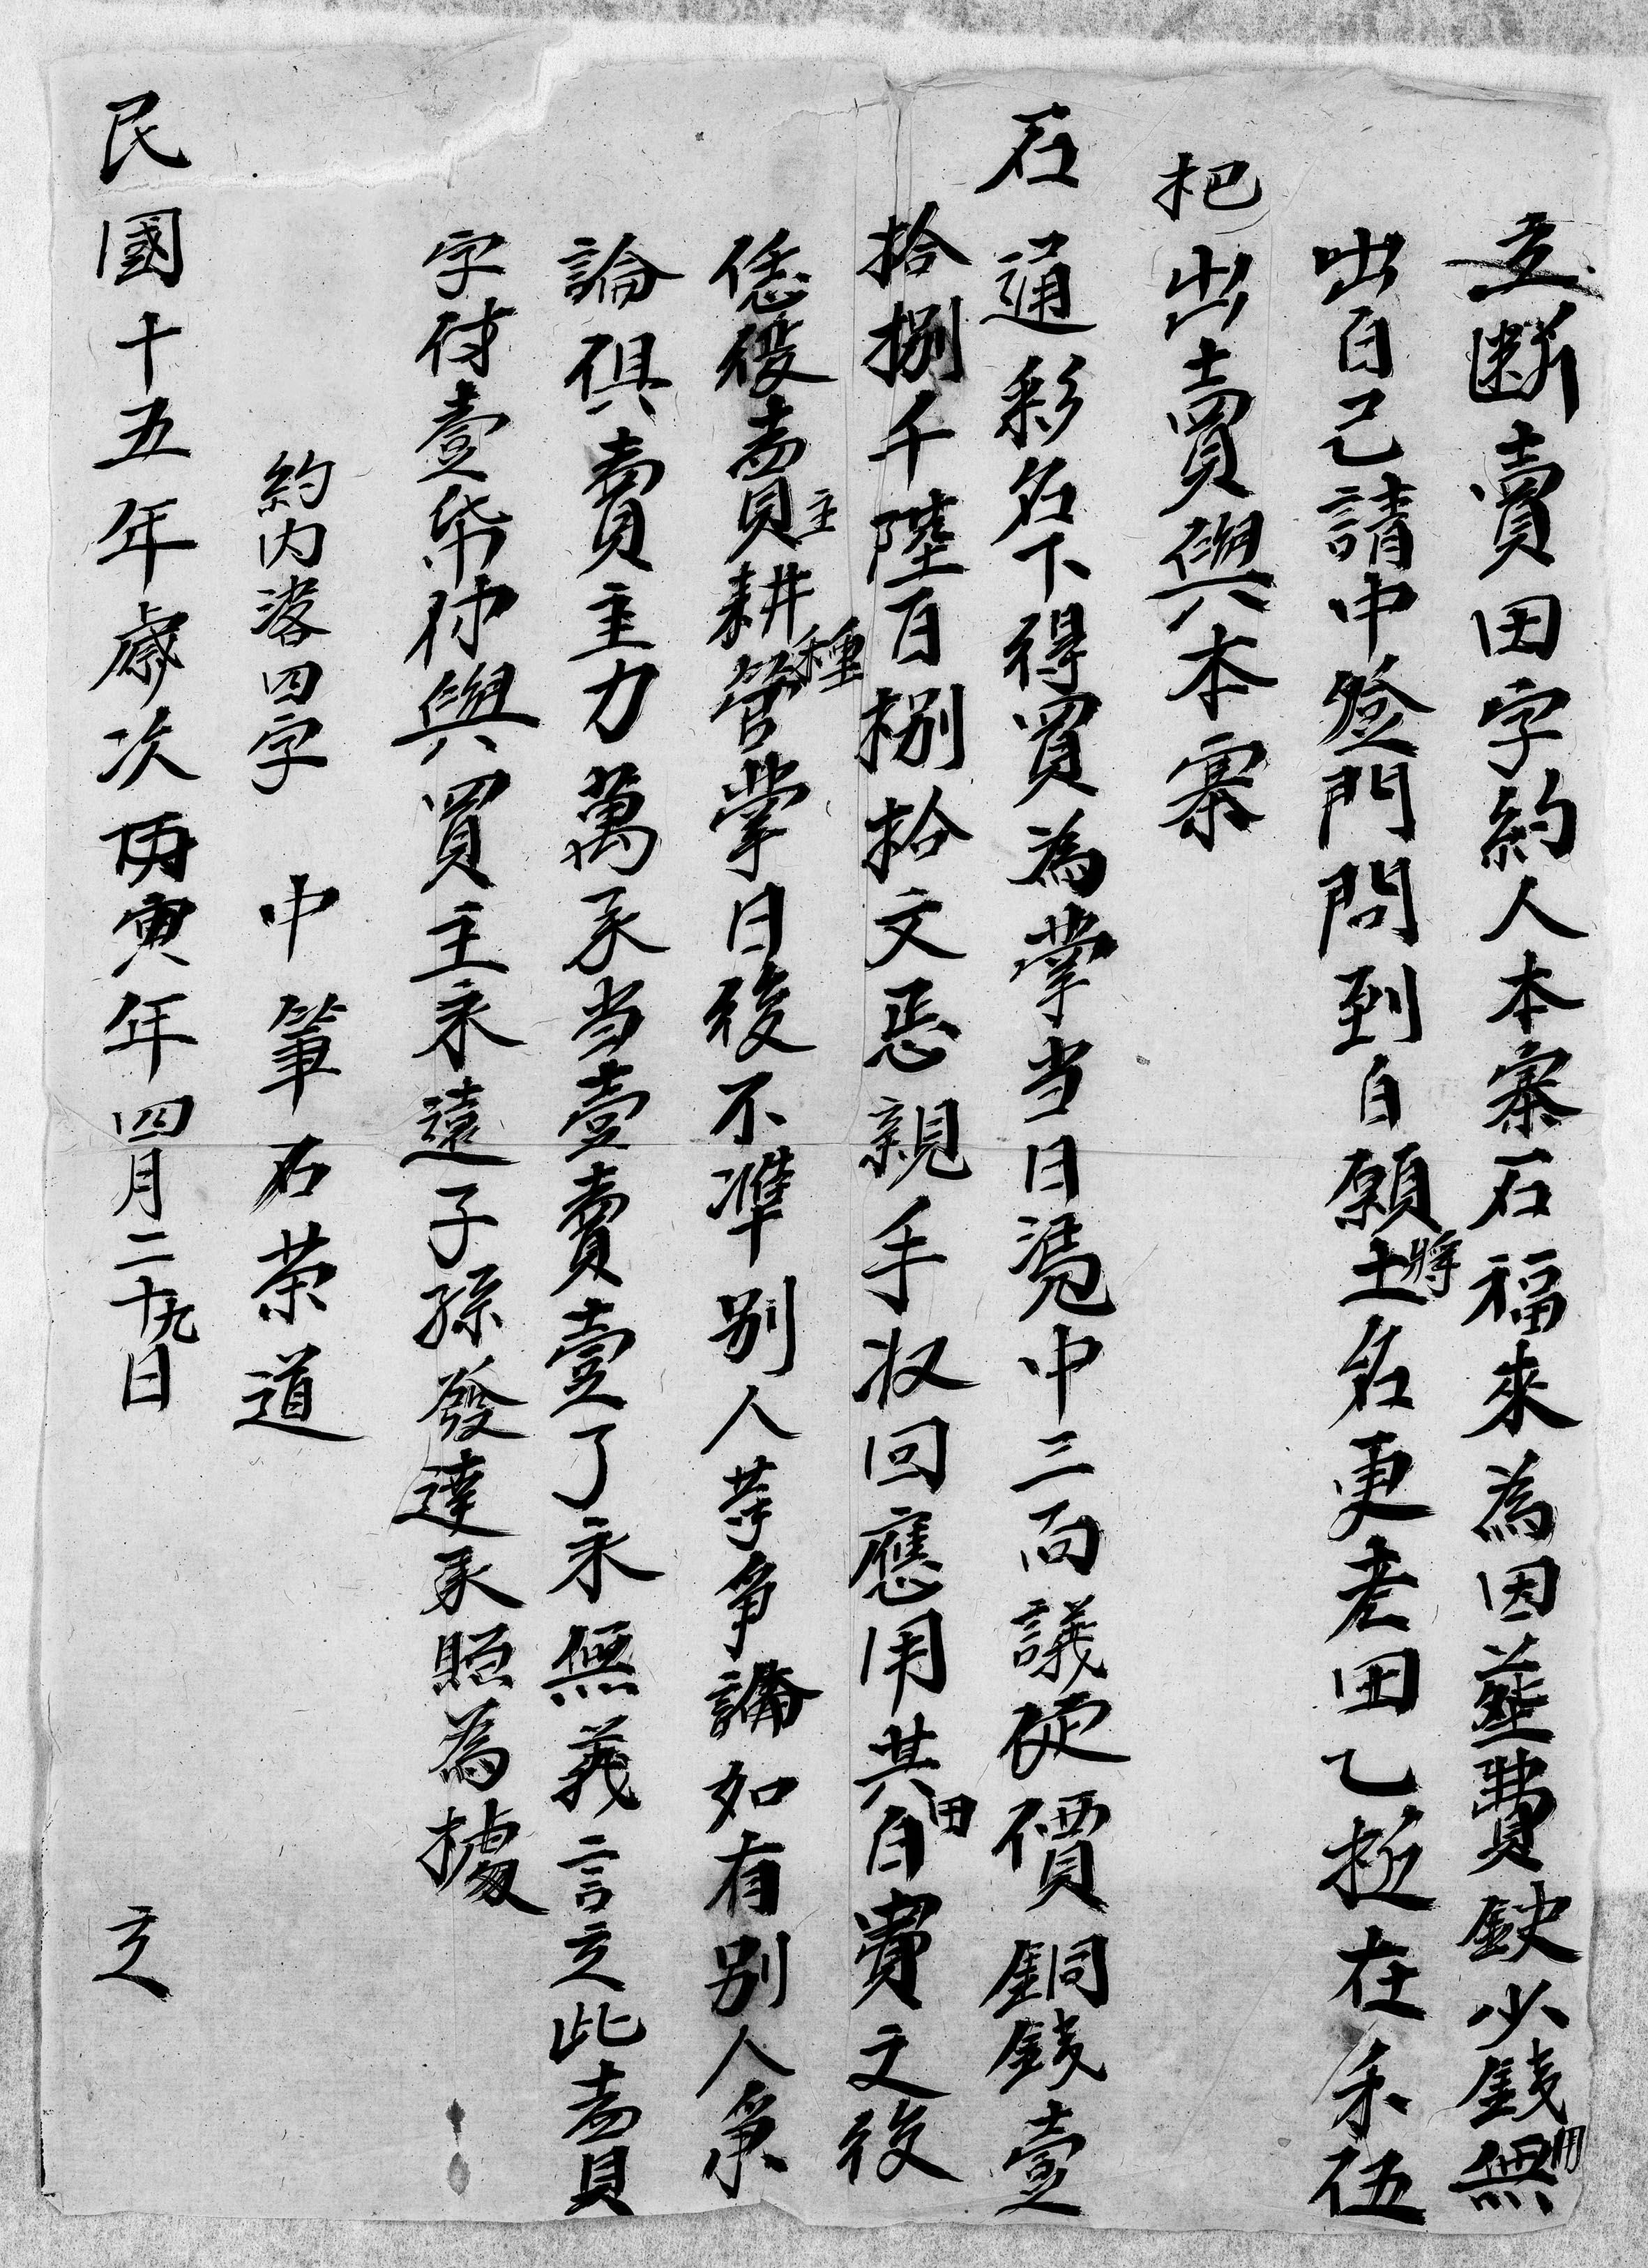 立斷賣田字約人本寨石福來為因葬費缺少錢用無
出自己請中登門問到自願將土名更老田乙坵在禾伍
把出賣與本寨
石通彩名下得買為業当日憑中三面議定價銅錢壹
拾捌千陸百捌拾文恁親手收回應用其田自賣之後
恁役賣主耕種管業日後不準別人等爭論如有別人爭
論俱賣主力萬承当壹賣壹了永無義言立此賣
字付壹帋存與買主永遠子孫發達承照為據
約内落四字 中筆石荣道
民國十五年歲次丙寅年四月二十九日 立